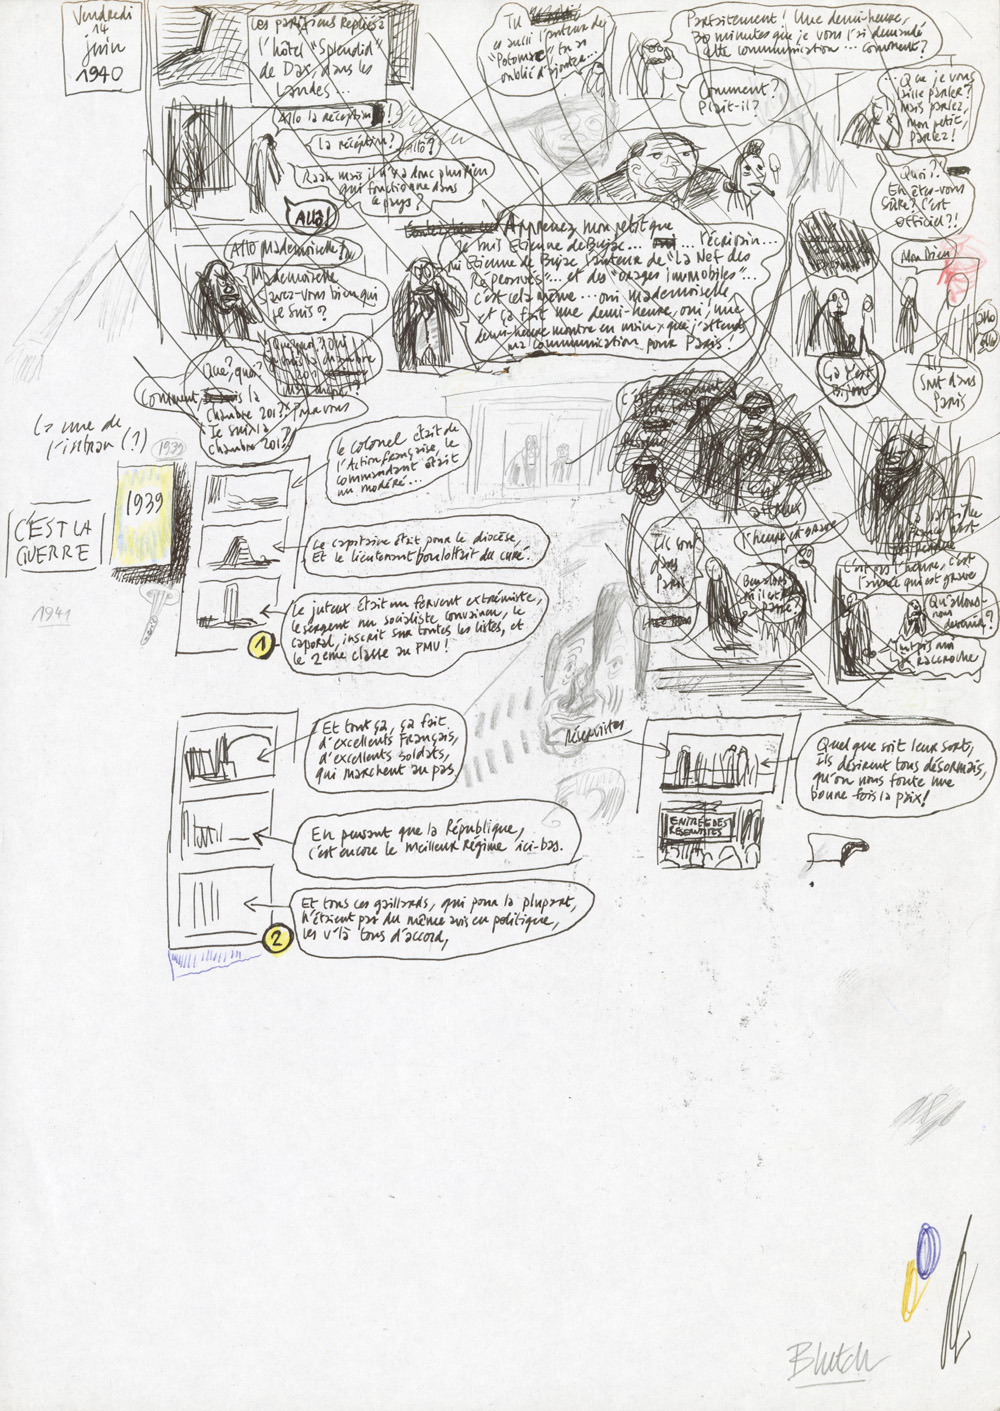 Vendredi
14
juin
1940
Les parisiens repliés à
l'hôtel "Splendid"
de Dax, dans les
Landes...
Allo la réception!
la réception? Allô?
Raah mais il n'y a donc plus rien
qui fonctionne dans
ce pays?
Allô!
Allo Mademoiselle?
Mademoiselle
savez-vous bien qui
je suis?
Que, quoi?
Comment, la
chambre 201?
Je suis la
chambre 201?
Tu
es aussi l'auteur de
"Potomac" tu as
oublié d'ajouter...
Parfaitement! Une demi-heure,
30 minutes que je vous l'ai demandé
cette communication... comment?
Comment?
Plait-il?
Apprenez mon petit que
je suis Etienne de Bujac... ... l'écrivain...
oui Etienne de Bujac l'auteur de "La Nef des
Réprouvés"... et des "orages immobiles"...
c'est cela même... oui mademoiselle
et ça fait une demi-heure, oui, une
demi-heure montre en main, que j'attends
ma communication pour Paris!
... Que je vous
laisse parler?
Mais parlez,
mon petit,
parlez!
Quoi?!
En êtes-vous
sûre? C'est
officiel?!
Mon Dieu
Ils
sont dans
Paris
Ils sont
dans
Paris
l'heure est grave
C'est pas l'heure, c'est
l'année qui est grave
Qu'allons-
nous
devenir?
raccroche
La une de
l'istran (1)
1939
1939
C'EST LA
GUERRE
1941
le colonel était de
l'Action française, le
commandant était
un modéré...
Le capitaine était pour le diocèse,
Et le lieutenant boulottait du curé.
Le juteux était un fervent extrémiste,
le sergent un socialiste convaincu, le
caporal, inscrit sur toutes les listes, et
le 2ème classe au PMU!
1
Et tout ça, ça fait
d'excellents Français,
d'excellents soldats,
qui marchent au pas,
En pensant que la République,
c'est encore le meilleur régime ici-bas.
Et tous ces gaillards, qui pour la plupart,
n'étaient pas du même avis en politique,
les v'là tous d'accord,
2
réservistes
Quel que soit leur sort,
ils désirent tous désormais,
qu'on nous foute une
bonne fois la paix!
ENTRÉE DES
RÉSERVISTES
Blutch